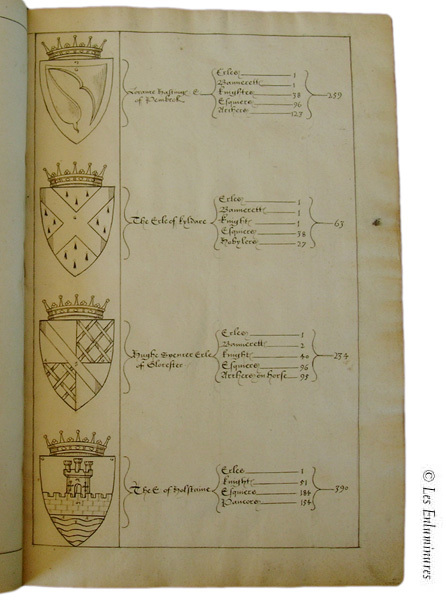 Lorance Hastings E
of Pembrok
Erles 1
Bannerett 1
Knightes 38
Esquiers 96
Archers 123
259
The Erle of Kyldare
Erles 1
Bannerett 1
Knight 1
Esquiers 38
Hobylers 27
63
Hughe Spenser Erle
of Glocester
Erles 1
Bannerett 2
Knight 40
Esquiers 96
Archers on horse 95
234
The E. of Holstaine
Erles 1
Knight 51
Esquiers 184
154
390
© Les Enluminures